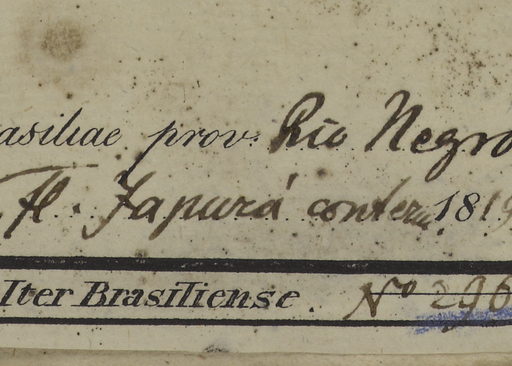 asiliae prov. Rio Negro
Fl. Japurá conterm. 1819
Iter Brasiliense. Nº 296